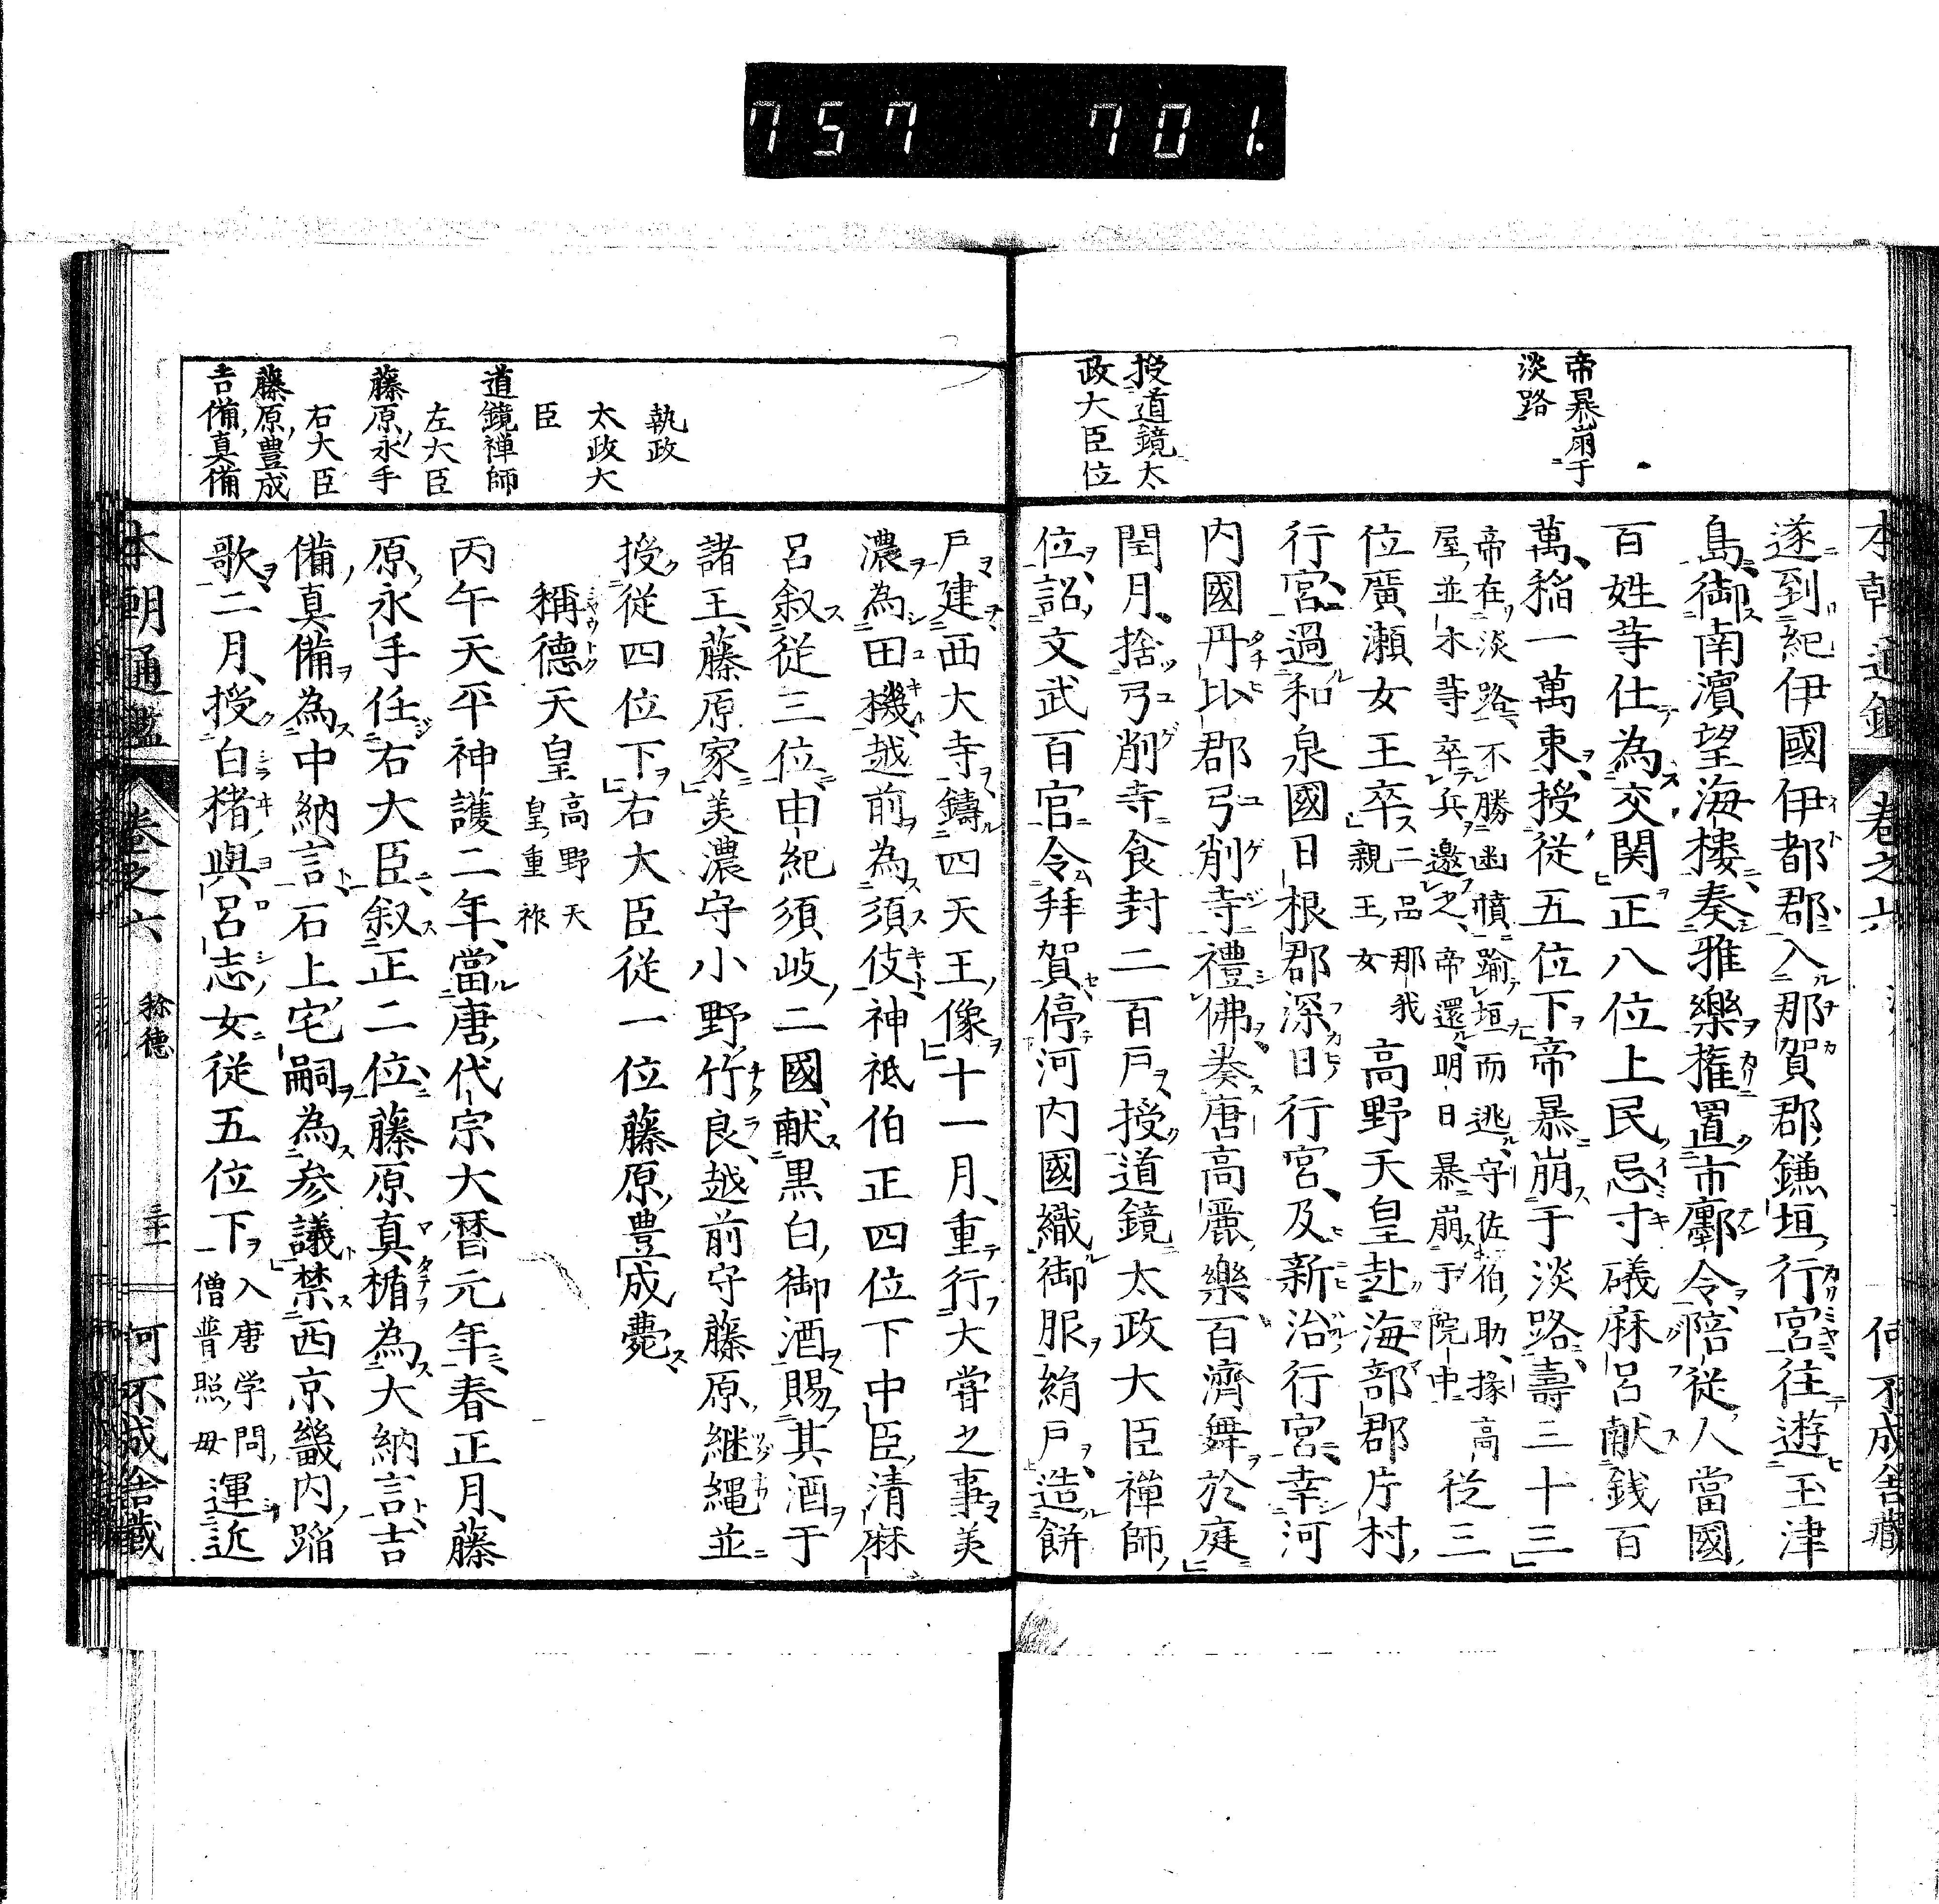 757 701.
帝暴崩于
淡路
授道鏡太
政大臣位
遂到紀伊國伊都郡入那賀郡鎌垣行宮往遊玉津
島御南濱望海樓奏雅樂権置市廛令陪従人當國
百姓等仕為交関正八位上民忌寸礒麻呂献銭百
萬稲一萬束授従五位下帝暴崩于淡路壽三十三
帝在淡路不勝幽憤踰垣而逃守佐伯助掾高
屋並木等卒兵邀之帝還明日暴崩于院中
従三
位廣瀬女王卒二品那我
親王女
高野天皇赴海部郡片村
行宮過和泉國日根郡深日行宮及新治行宮幸河
内國丹比郡弓削寺禮佛奏唐高麗樂百濟舞於庭
閏月捨弓削寺食封二百戸授道鏡太政大臣禅師
位詔文武百官令拜賀停河内國織御服絹戸造餅
戸建西大寺鑄四天王像十一月重行大甞之事美
濃為田機越前為須伎神祇伯正四位下中臣清麻
呂叙従三位由紀須岐二國献黒白御酒賜其酒于
諸王藤原家美濃守小野竹良越前守藤原継縄並
授従四位下右大臣従一位藤原豊成薨
稱德天皇高野天
皇重祚
丙午天平神護二年當唐代宗大暦元年春正月藤
原永手任右大臣叙正二位藤原真楯為大納言吉
備真備為中納言石上宅嗣為参議禁西京畿内踏
歌二月授白猪與呂志女従五位下入唐学問
一僧普照毋
運近
執政
太政大
臣
道鏡禅師
左大臣
藤原永手
右大臣
藤原豊成
吉備真備
本朝通鑑 巻之六 称德 三十一 何不成舎藏